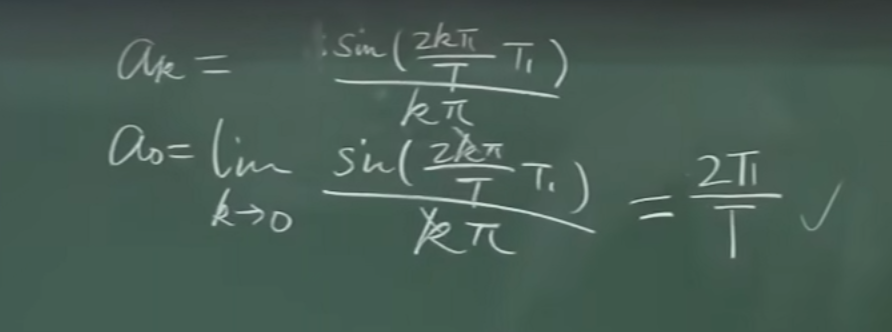 aₖ = sin(2kπ/T T₁) / kπ
a₀ = lim k→0 sin(2kπ/T T₁) / kπ = 2T₁/T ✓